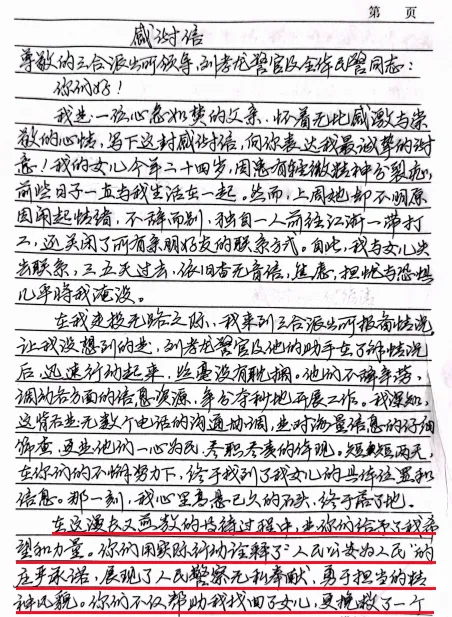 第 页
感谢信
尊敬的三合派出所领导,刘孝龙警官及全体民警同志:
你们好!
我是一位心急如焚的父亲,怀着无比感激与崇
敬的心情,写下这封感谢信,向你表达我最诚挚的谢
意!我的女儿今年二十四岁,因患有轻微精神分裂症,
前些日子一直与我生活在一起。然而,上周她却不明原
因闹起情绪,不辞而别,独自一人前往江浙一带打
工,还关闭了所有亲朋好友的联系方式。自此,我与女儿失
去联系,三五天过去,依旧杳无音信,焦虑,担忧与恐惧
几乎将我淹没。
在我走投无路之际,我来到三合派出所报案情况,
让我没想到的是,刘孝龙警官及他的助手在了解情况
后,迅速行动起来,丝毫没有耽搁。他们不辞辛劳,
调动各方面的信息资源,争分夺秒地开展工作。我深知,
这背后是无数个电话的沟通协调,是对海量信息的仔细
筛查,更是他们一心为民,尽职尽责的体现。短短两天,
在你们的不懈努力下,终于找到了我女儿的具体位置和
信息。那一刻,我心里高悬已久的石头,终于落了地。
在这漫长又煎熬的等待过程中,是你们给予了我希
望和力量。你们用实际行动诠释了“人民公安为人民”的
庄严承诺,展现了人民警察无私奉献,勇于担当的精
神风貌。你们不仅帮助我找回了女儿,更挽救了一个